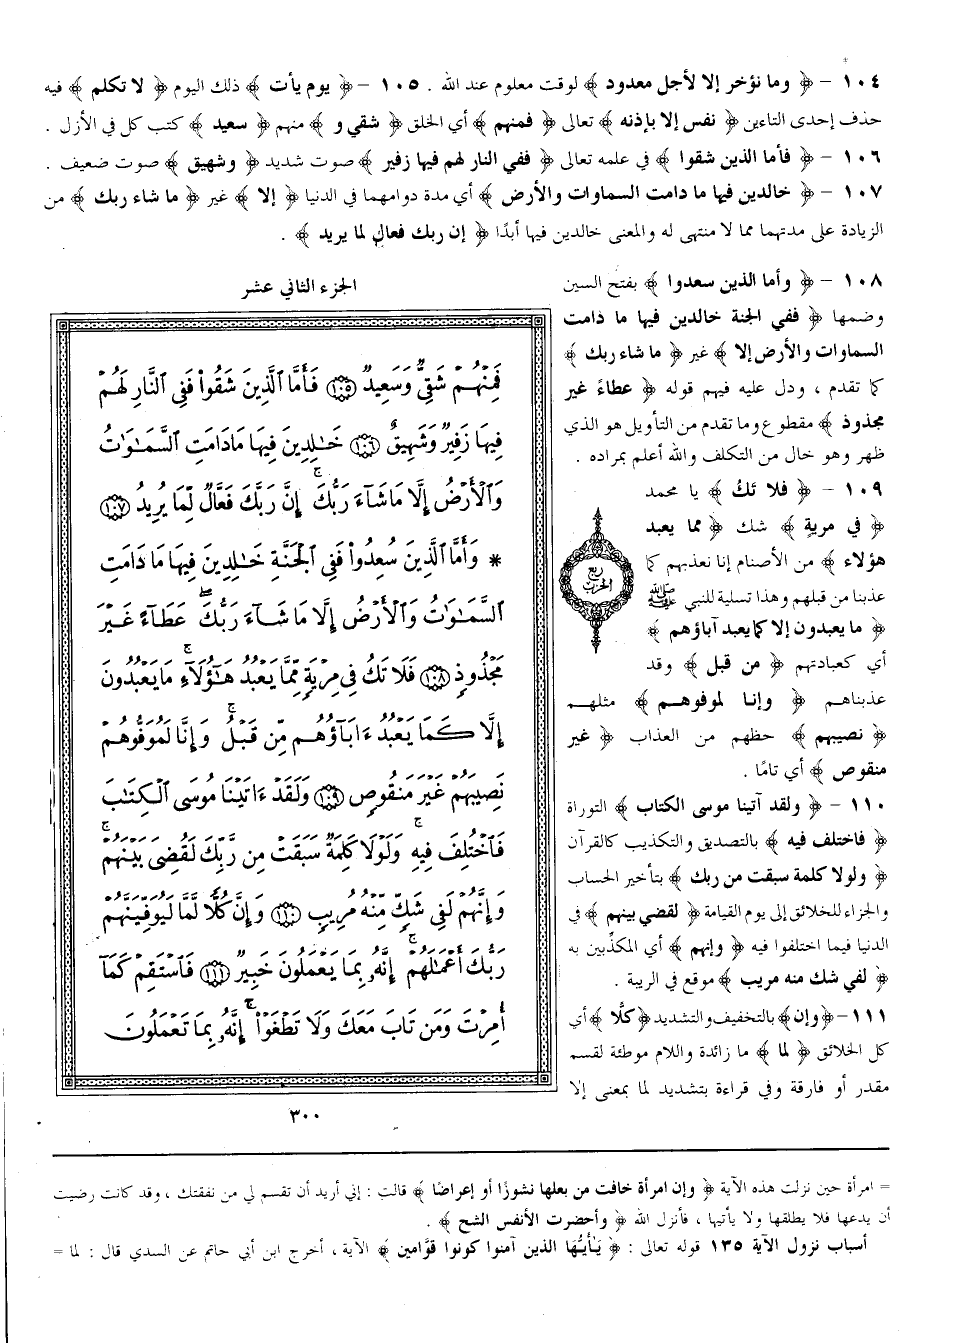 ١٠٤ – ﴿ وما نؤخر إلا لأجل معدود ﴾ لوقت معلوم عند الله . ١٠٥ – ﴿ يوم يأت ﴾ ذلك اليوم ﴿ لا تكلم ﴾ فيه
حذف إحدى التاءين ﴿ نفس إلا بإذنه ﴾ تعالى ﴿ فمنهم ﴾ أي الخلق ﴿ شقي و ﴾ منهم ﴿ سعيد ﴾ كتب كل في الأزل .
١٠٦ – ﴿ فأما الذين شقوا ﴾ في علمه تعالى ﴿ ففي النار لهم فيها زفير ﴾ صوت شديد ﴿ وشهيق ﴾ صوت ضعيف .
١٠٧ – ﴿ خالدين فيها ما دامت السماوات والأرض ﴾ أي مدة دوامهما في الدنيا ﴿ إلا ﴾ غير ﴿ ما شاء ربك ﴾ من
الزيادة على مدتهما مما لا منتهى له والمعنى خالدين فيها أبدًا ﴿ إن ربك فعال لما يريد ﴾ .
١٠٨ – ﴿ وأما الذين سعدوا ﴾ بفتح السين
وضمها ﴿ ففي الجنة خالدين فيها ما دامت
السماوات والأرض إلا ﴾ غير ﴿ ما شاء ربك ﴾
كما تقدم ، ودل عليه فيهم قوله ﴿ عطاءً غير
مجذوذ ﴾ مقطوع وما تقدم من التأويل هو الذي
ظهر وهو خال من التكلف والله أعلم بمراده .
١٠٩ – ﴿ فلا تكُ ﴾ يا محمد
﴿ في مرية ﴾ شك ﴿ مما يعبد
هؤلاء ﴾ من الأصنام إنا نعذبهم كما
عذبنا من قبلهم وهذا تسلية للنبي ﷺ
﴿ ما يعبدون إلا كما يعبد آباؤهم ﴾
أي كعبادتهم ﴿ من قبل ﴾ وقد
عذبناهم ﴿ وإنا لموفوهم ﴾ مثلهم
﴿ نصيبهم ﴾ حظهم من العذاب ﴿ غير
منقوص ﴾ أي تامًا .
١١٠ – ﴿ ولقد آتينا موسى الكتاب ﴾ التوراة
﴿ فاختلف فيه ﴾ بالتصديق والتكذيب كالقرآن
﴿ ولولا كلمة سبقت من ربك ﴾ بتأخير الحساب
والجزاء للخلائق إلى يوم القيامة ﴿ لقضي بينهم ﴾ في
الدنيا فيما اختلفوا فيه ﴿ وإنهم ﴾ أي المكذِّبين به
﴿ لفي شك منه مريب ﴾ موقع في الريبة .
١١١ – ﴿ وإن ﴾ بالتخفيف والتشديد ﴿ كلًّا ﴾ أي
كل الخلائق ﴿ لما ﴾ ما زائدة واللام موطئة لقسم
مقدر أو فارقة وفي قراءة بتشديد لما بمعنى إلا
ربع
الحزب
الجزء الثاني عشر
فَمِنْهُمْ شَقِيٌّ وَسَعِيدٌ ١٠٥ فَأَمَّا ٱلَّذِينَ شَقُوا۟ فَفِى ٱلنَّارِ لَهُمْ
فِيهَا زَفِيرٌ وَشَهِيقٌ ١٠٦ خَـٰلِدِينَ فِيهَا مَا دَامَتِ ٱلسَّمَـٰوَٰتُ
وَٱلْأَرْضُ إِلَّا مَا شَآءَ رَبُّكَ ۚ إِنَّ رَبَّكَ فَعَّالٌ لِّمَا يُرِيدُ ١٠٧
* وَأَمَّا ٱلَّذِينَ سُعِدُوا۟ فَفِى ٱلْجَنَّةِ خَـٰلِدِينَ فِيهَا مَا دَامَتِ
ٱلسَّمَـٰوَٰتُ وَٱلْأَرْضُ إِلَّا مَا شَآءَ رَبُّكَ ۖ عَطَآءً غَيْرَ
مَجْذُوذٍ ١٠٨ فَلَا تَكُ فِى مِرْيَةٍ مِّمَّا يَعْبُدُ هَـٰٓؤُلَآءِ ۚ مَا يَعْبُدُونَ
إِلَّا كَمَا يَعْبُدُ ءَابَآؤُهُم مِّن قَبْلُ ۚ وَإِنَّا لَمُوَفُّوهُمْ
نَصِيبَهُمْ غَيْرَ مَنقُوصٍ ١٠٩ وَلَقَدْ ءَاتَيْنَا مُوسَى ٱلْكِتَـٰبَ
فَٱخْتُلِفَ فِيهِ ۚ وَلَوْلَا كَلِمَةٌ سَبَقَتْ مِن رَّبِّكَ لَقُضِىَ بَيْنَهُمْ ۚ
وَإِنَّهُمْ لَفِى شَكٍّ مِّنْهُ مُرِيبٍ ١١٠ وَإِنَّ كُلًّا لَّمَّا لَيُوَفِّيَنَّهُمْ
رَبُّكَ أَعْمَـٰلَهُمْ ۚ إِنَّهُۥ بِمَا يَعْمَلُونَ خَبِيرٌ ١١١ فَٱسْتَقِمْ كَمَآ
أُمِرْتَ وَمَن تَابَ مَعَكَ وَلَا تَطْغَوْا۟ ۚ إِنَّهُۥ بِمَا تَعْمَلُونَ
٣٠٠
= امرأة حين نزلت هذه الآية ﴿ وإن امرأة خافت من بعلها نشوزًا أو إعراضًا ﴾ قالت : إني أريد أن تقسم لي من نفقتك ، وقد كانت رضيت
أن يدعها فلا يطلقها ولا يأتيها ، فأنزل الله ﴿ وأحضرت الأنفس الشح ﴾ .
أسباب نزول الآية ١٣٥ قوله تعالى : ﴿ يَـٰأيُّهَا الذين آمنوا كونوا قوَّامين ﴾ الآية ، أخرج ابن أبي حاتم عن السدي قال : لما =